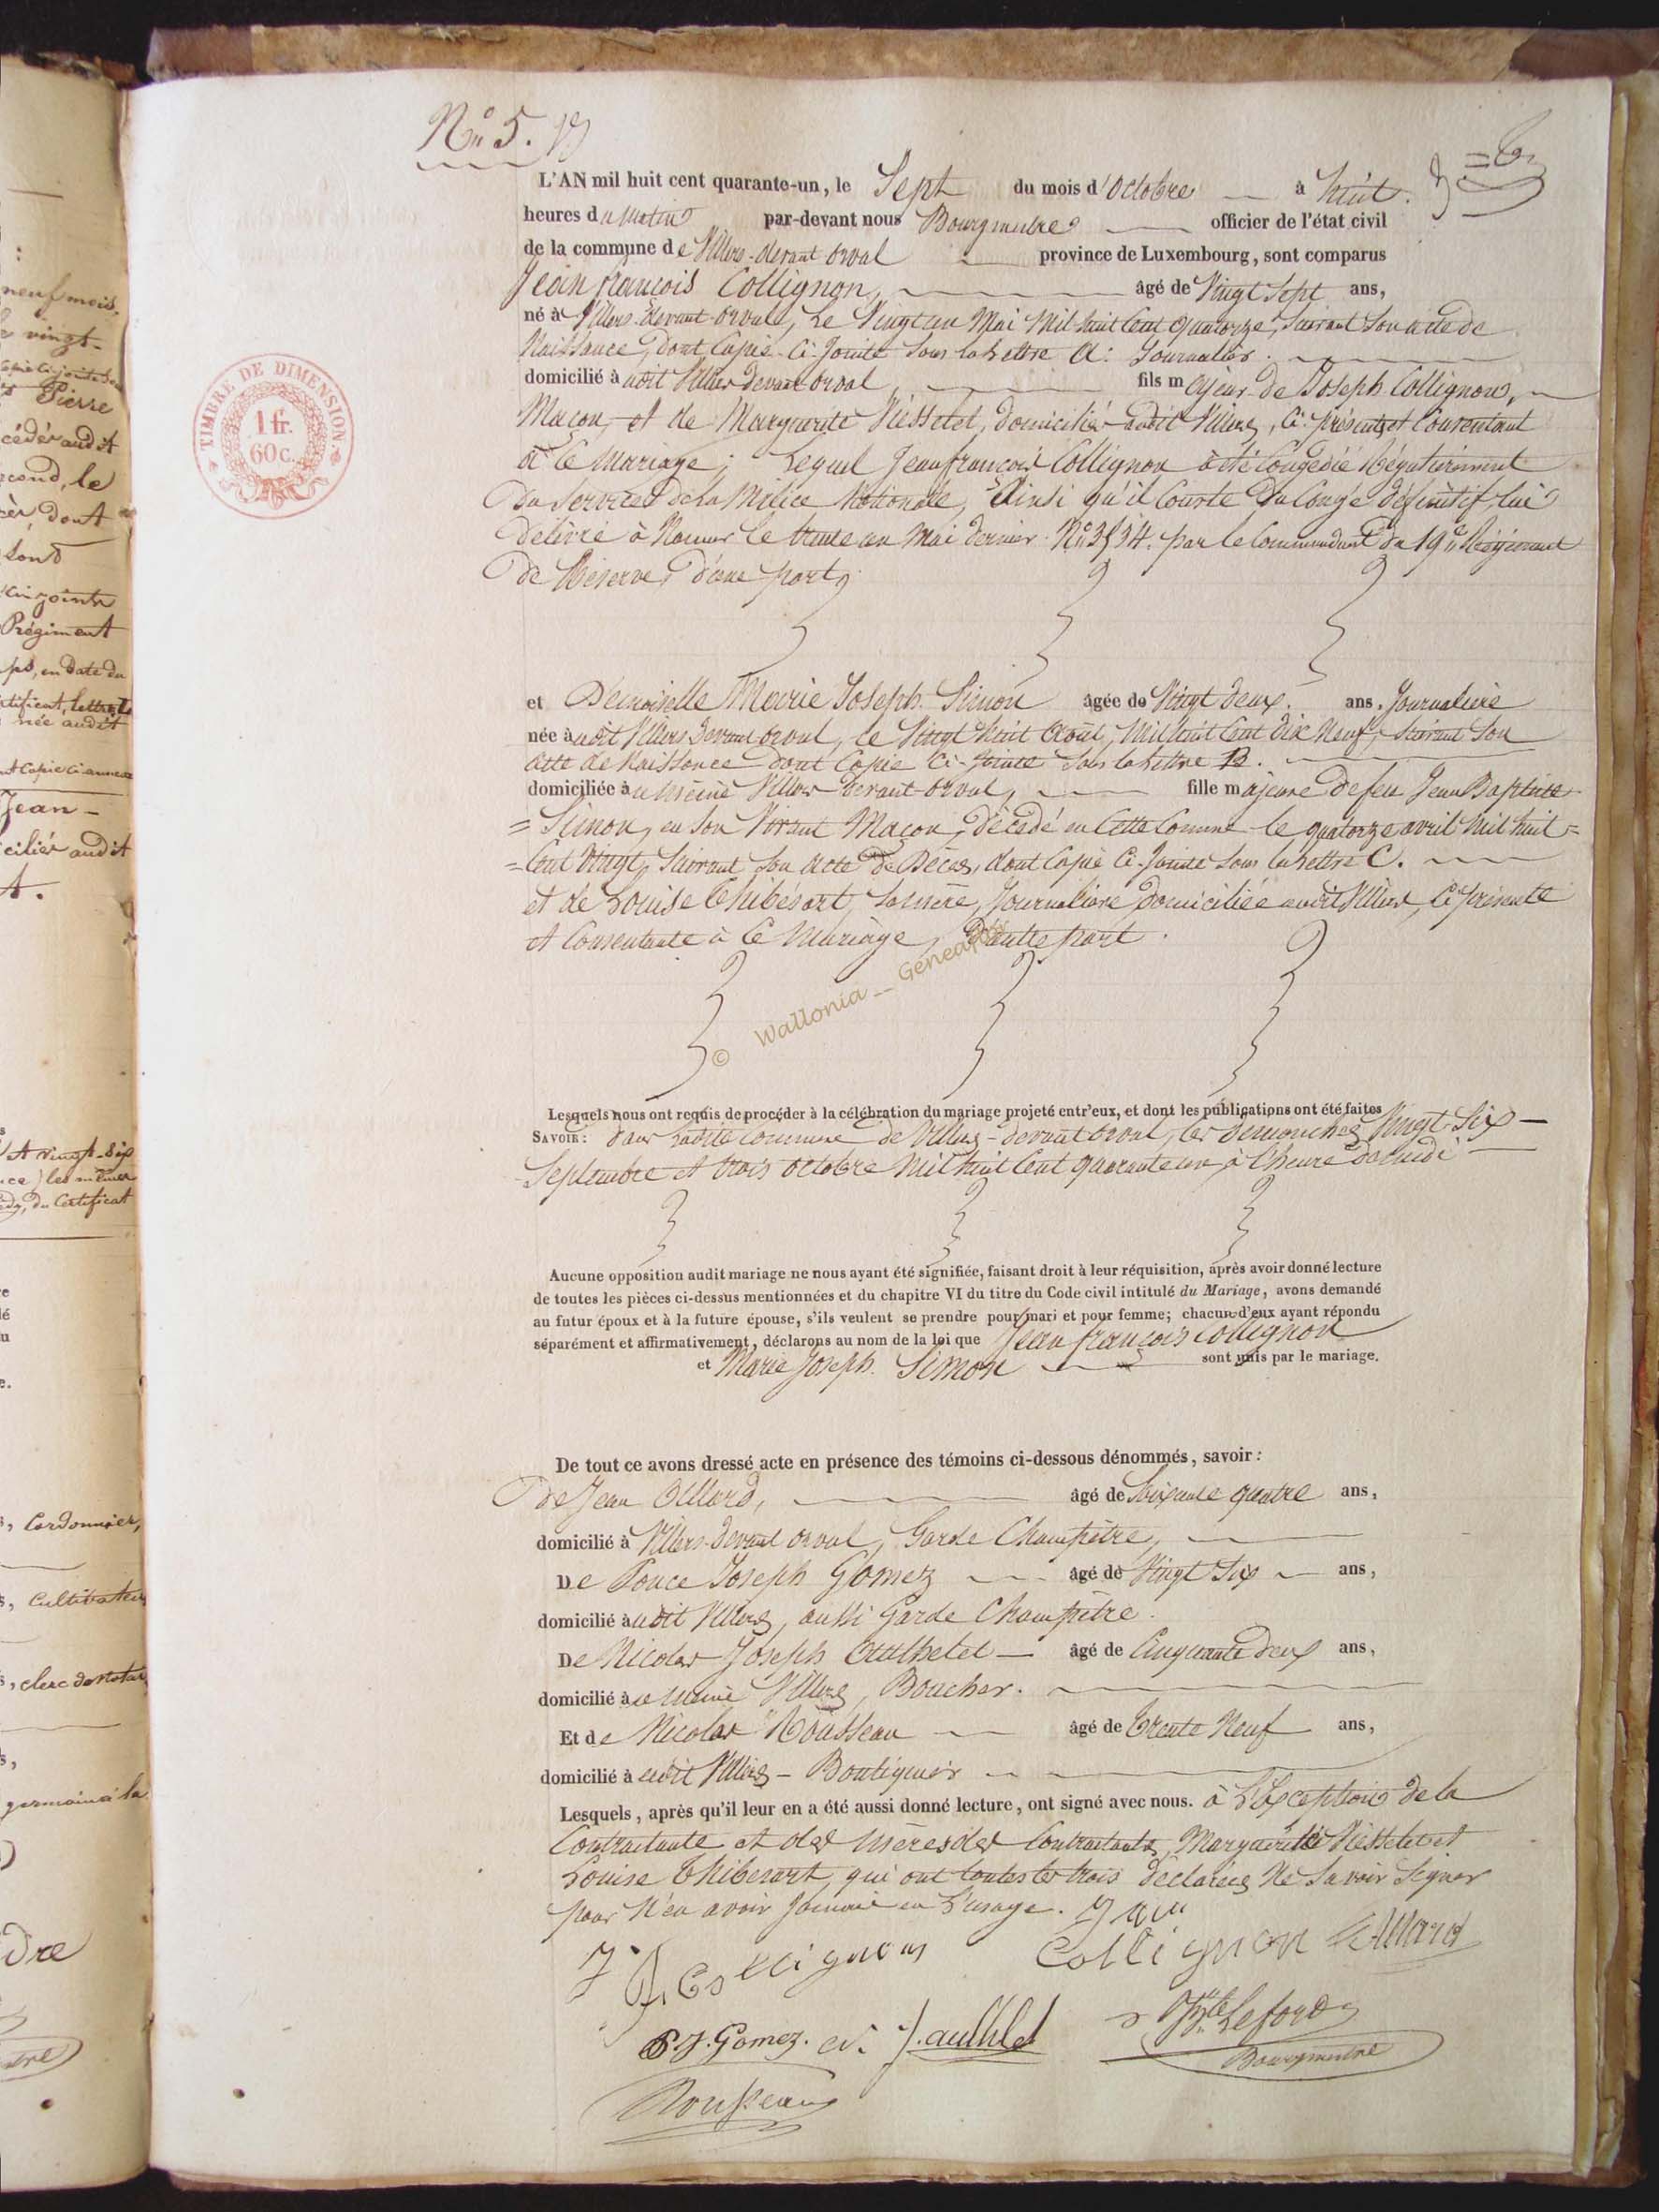 N° 5.
L'AN mil huit cent quarante-un, le Sept du mois d'Octobre à huit
heures du matin par-devant nous Bourgmestre officier de l'état civil
de la commune de Villers-devant orval province de Luxembourg, sont comparus
Jean françois Collignon, âgé de Vingt Sept ans,
né à Villers-devant-orval, le Vingt un Mai Mil huit Cent quatorze, Suivant Son acte de
Naissance, dont Copie Ci-Jointe Sous la Lettre A: Journalier.
domicilié à udit Villers devant orval, fils majeur de Joseph Collignon,
Maçon, et de Marguerite Piesselet, domiciliés audit Villers, Ci-présents et Consentant
à Ce Mariage; Lequel Jean françois Collignon à été Congédié Régulièrement
du Service de la Milice Nationale, Ainsi qu'il Conste du Congé définitif, lui
délivré à Namur le trente un Mai dernier N° 3534. par le Commandant du 19e Régiment
de Réserve, d'une part,
et Demoiselle Marie Joseph Simon âgée de Vingt deux ans, Journalière
née à udit Villers devant orval, le Vingt huit Août, Mil huit Cent dix Neuf, Suivant Son
acte de Naissance dont Copie Ci-Jointe Sous la Lettre B.
domiciliée à u même Villers devant-orval, fille majeure de feu Jean Baptiste
= Simon, en Son Vivant Maçon, décédé en Cette Comune le quatorze avril Mil huit =
= Cent Vingt, Suivant Son acte de Décès, dont Copie Ci-Jointe Sous la Lettre C.
et de Louise Thibésart, Sa mère, Journalière domiciliée audit Villers, Ci présente
et Consentante à Ce Mariage, d'autre part.
© Wallonia _ Geneanet
Lesquels nous ont requis de procéder à la célébration du mariage projeté entr'eux, et dont les publications ont été faites
SAVOIR: dans Ladite Commune de Villers-devant orval, les dimanches Vingt-Six
Septembre et trois octobre Mil huit Cent quarante un à l'heure de midi
Aucune opposition audit mariage ne nous ayant été signifiée, faisant droit à leur réquisition, après avoir donné lecture
de toutes les pièces ci-dessus mentionnées et du chapitre VI du titre du Code civil intitulé du Mariage, avons demandé
au futur époux et à la future épouse, s'ils veulent se prendre pour mari et pour femme; chacun d'eux ayant répondu
séparément et affirmativement, déclarons au nom de la loi que Jean françois Collignon
et Marie Joseph Simon sont unis par le mariage.
De tout ce avons dressé acte en présence des témoins ci-dessous dénommés, savoir:
de Jean âgé de Soixante quatre ans,
domicilié à Villers-devant orval, Garde Champêtre,
De Ponce Joseph Gomez âgé de Vingt Six ans,
domicilié à udit Villers, aussi Garde Champêtre.
De Nicolas Joseph Authelet âgé de Cinquante deux ans,
domicilié à u même Villers, Boucher.
Et de Nicolas Rousseau âgé de Trente Neuf ans,
domicilié à udit Villers - Boutiquier
Lesquels, après qu'il leur en a été aussi donné lecture, ont signé avec nous. à L'Exception de la
Contractante et des mères des Contractants, Marguerite Piesselet et
Louise Thibesart, qui ont toutes les trois déclarées Ne Savoir Signer
pour N'en avoir Jamais eu L'usage.
J. f. Collignon Collignon
P. J. Gomez. N. J. authelet Lefort
Bourgmestre
Rousseau
TIMBRE DE DIMENSION.
1 fr.
60 c.
neuf mois,
vingt-
Pierre
cédés audit
second, le
dont
Régiment
en date du
certificat, lettre
née audit
Jean-
ciliés audit
A.
et vingt-six
les mêmes
du Certificat
Cordonnier,
Cultivateur
clerc de notaire
germain à la